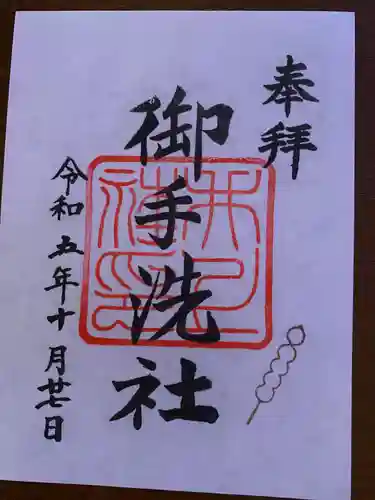 奉拝
御手洗社
令和五年十月廿七日